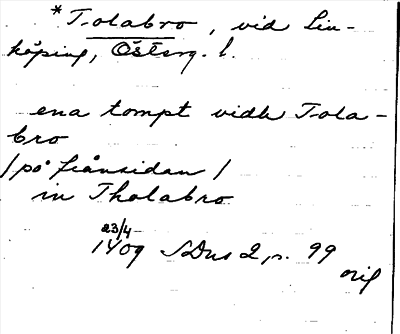 *Tolabro, vid Lin-
köping, Österg. l.
ena tompt vidh Tola-
bro
/på frånsidan/
in Tholabro
23/4
1409 SDns 2, s. 99
orig